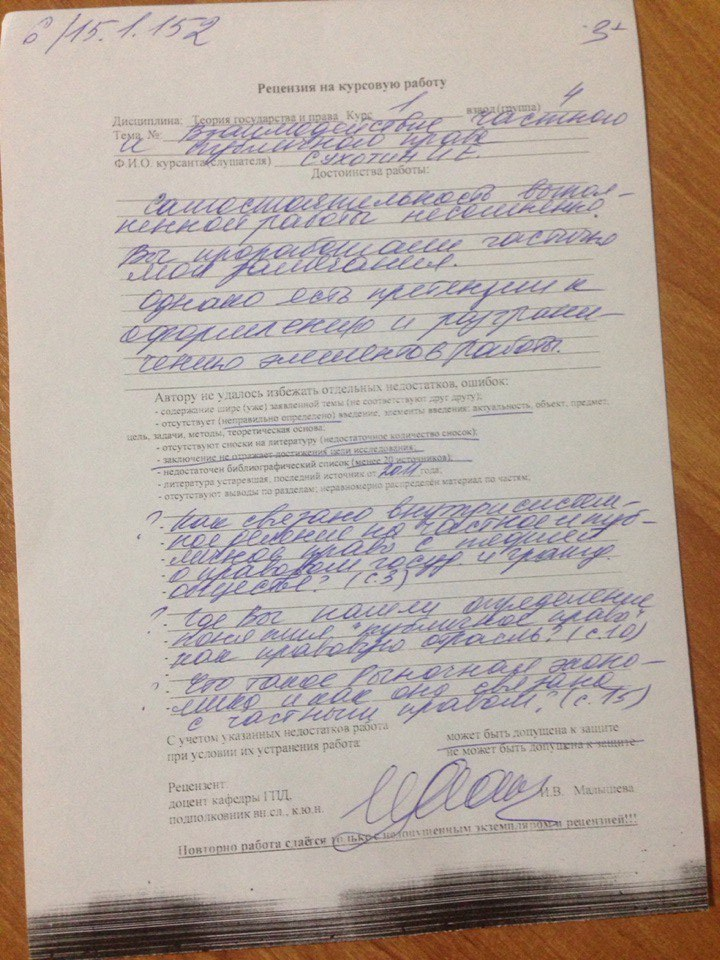 б/15.1.152
3+
Рецензия на курсовую работу
Дисциплина: Теория государства и права Курс 1 взвод (группа) 4
Тема №: Взаимодействие частного
и публичного права
Ф.И.О. курсанта (слушателя) Сухотин И.Е.
Достоинства работы:
Самостоятельность выпол-
ненной работы несомненна.
Вы проработали частично
мои замечания.
Однако есть претензии к
оформлению и разграни-
чению элементов работы.
Автору не удалось избежать отдельных недостатков, ошибок:
- содержание шире (уже) заявленной темы (не соответствуют друг другу);
- отсутствует (неправильно определено) введение, элементы введения: актуальность, объект, предмет,
цель, задачи, методы, теоретическая основа;
- отсутствуют сноски на литературу (недостаточное количество сносок);
- заключение не отражает достижения цели исследования
- недостаточен библиографический список (менее 20 источников);
- литература устаревшая, последний источник от 2011 года;
- отсутствуют выводы по разделам; неравномерно распределен материал по частям;
? - Как связано внутрисистем-
ное деление на частное и пуб-
личное право с теорией
о правовом госуд. и гражд.
обществе? (с.3)
? - Где Вы нашли определение
понятия "публичное право"
как правовую отрасль? (с.10)
? - Что такое рыночная эконо-
мика и как она связана
с частным правом? (с.15)
С учетом указанных недостатков работа
при условии их устранения работа:
может быть допущена к защите
не может быть допущена к защите
Рецензент:
доцент кафедры ГПД,
подполковник вн.сл., к.ю.н.
И.В. Малышева
Повторно работа сдаётся только с недопущенным экземпляром и рецензией!!!